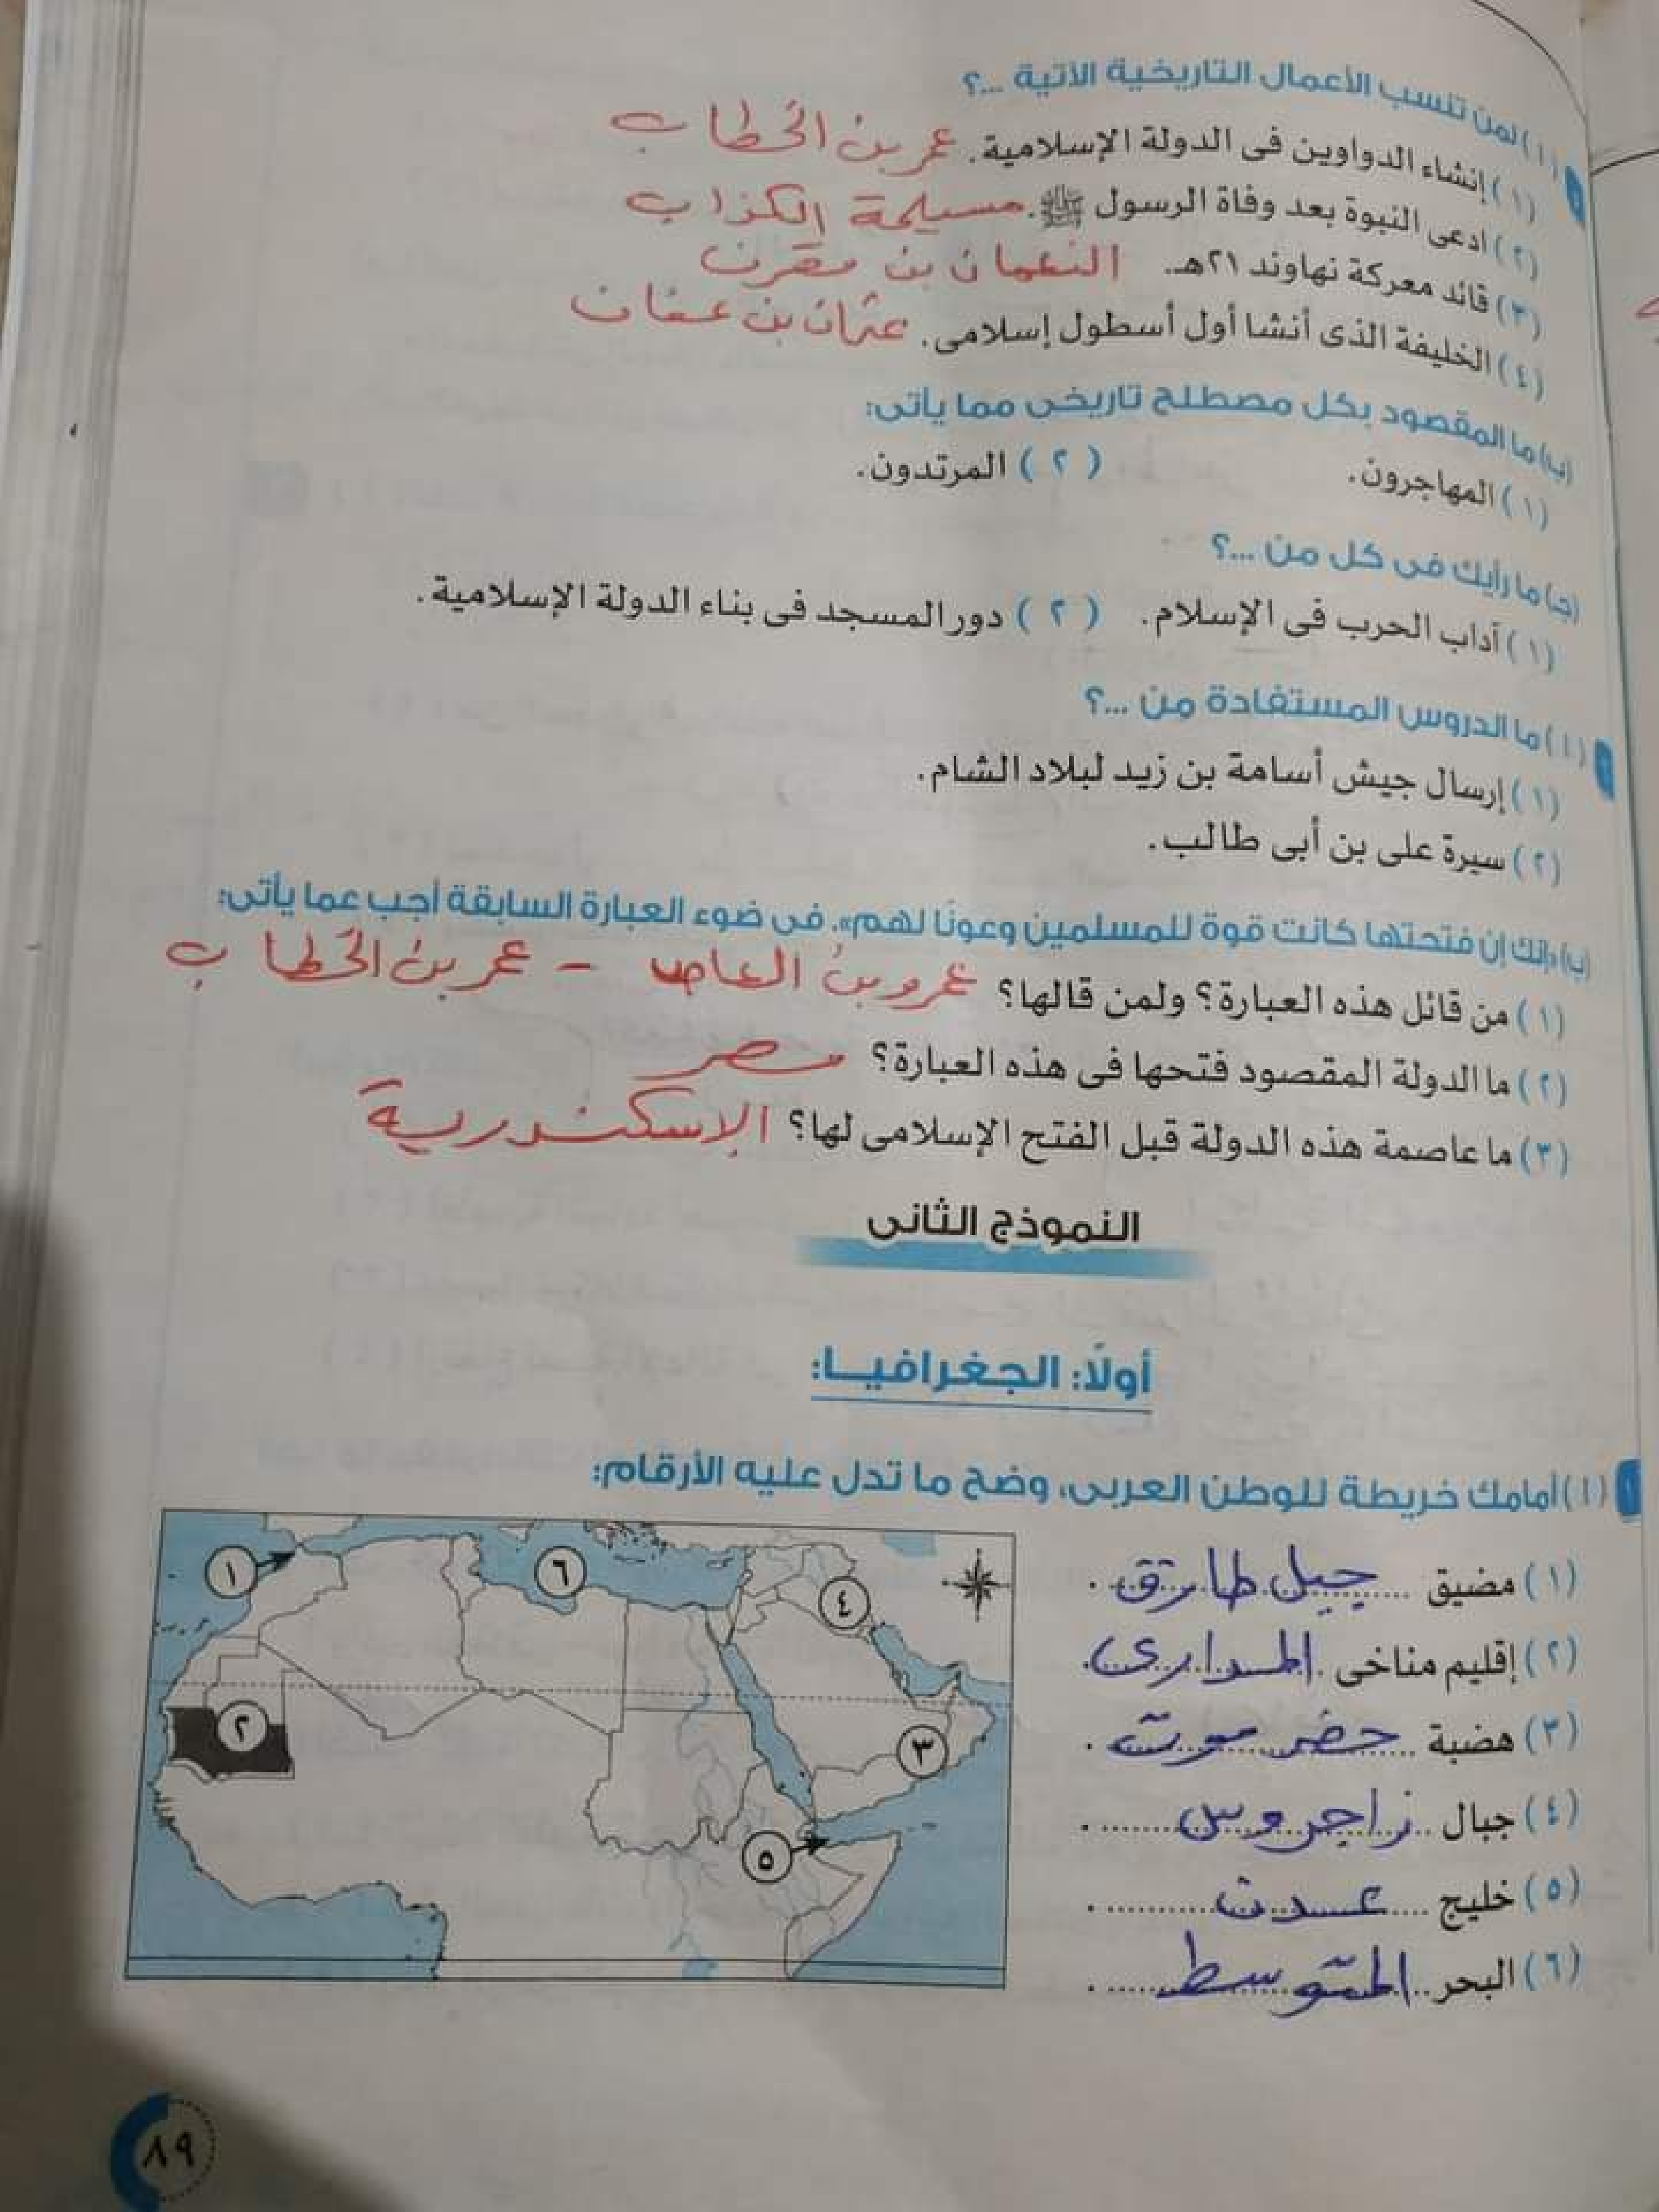 (أ) لمن تنسب الأعمال التاريخية الآتية ...؟
(١) إنشاء الدواوين فى الدولة الإسلامية. عمر بن الخطاب
(٢) ادعى النبوة بعد وفاة الرسول ﷺ. مسيلمة الكذاب
(٣) قائد معركة نهاوند ٢١هـ. النعمان بن مقرن
(٤) الخليفة الذى أنشا أول أسطول إسلامى. عثمان بن عفان
(ب) ما المقصود بكل مصطلح تاريخى مما يأتى:
(١) المهاجرون. (٢) المرتدون.
(جـ) ما رأيك فى كل من ...؟
(١) آداب الحرب فى الإسلام. (٢) دور المسجد فى بناء الدولة الإسلامية.
٦ (أ) ما الدروس المستفادة من ...؟
(١) إرسال جيش أسامة بن زيد لبلاد الشام.
(٢) سيرة على بن أبى طالب.
(ب) «إنك إن فتحتها كانت قوة للمسلمين وعونًا لهم». فى ضوء العبارة السابقة أجب عما يأتى:
(١) من قائل هذه العبارة؟ ولمن قالها؟ عمرو بن العاص - عمر بن الخطاب
(٢) ما الدولة المقصود فتحها فى هذه العبارة؟ مصر
(٣) ما عاصمة هذه الدولة قبل الفتح الإسلامى لها؟ الإسكندرية
النموذج الثانى
أولًا: الجغرافيا:
١ (أ) أمامك خريطة للوطن العربى، وضح ما تدل عليه الأرقام:
(١) مضيق جبل طارق.
(٢) إقليم مناخى المدارى.
(٣) هضبة حضر موت.
(٤) جبال زاجروس.
(٥) خليج عدن.
(٦) البحر المتوسط.
١
٦
٤
٢
٣
٥
٨٩